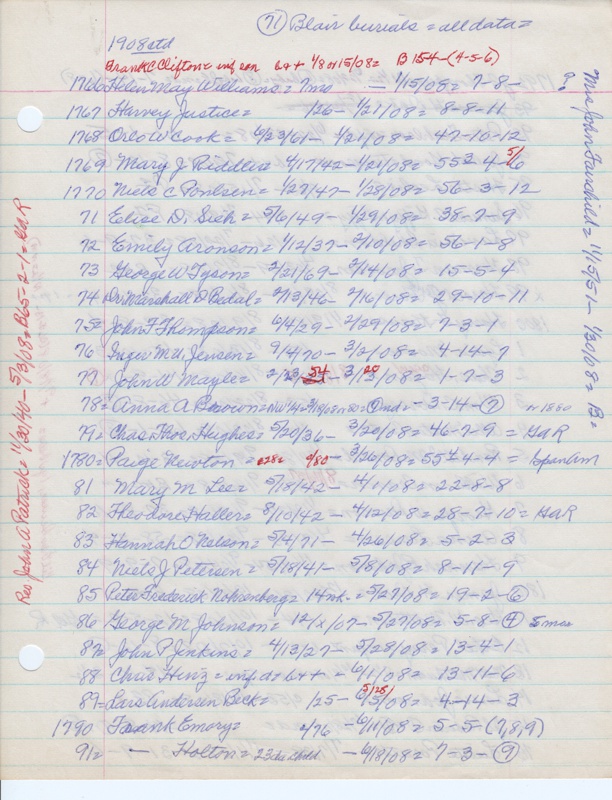 (71) Blair burials = all data =
1908 std
Frank C Clifton = inf son b+t 1/8 or 15/08 = B 154-(4-5-6)
1766 Helen May Williams = 7mo — 1/15/08 = 7-8-
1767 Harvey Justice = 1/26 - 1/21/08 = 8-8-11
1768 Orlo W Cook = 6/23/61 - 1/21/08 = 47-10-12
1769 Mary J Riddler = 4/17/42 - 1/21/08 = 55½ 4-6 5/
1770 Niels C Ponlsen = 1/27/47 - 1/28/08 = 56-3-12
71 Elise D. Sish = 5/6/49 - 1/29/08 = 38-7-9
72 Emily Aronson = 1/12/37 - 2/10/08 = 56-1-8
73 George W Tyson = 2/21/69 - 2/14/08 = 15-5-4
74 Dr. Marshall D Bedal = 2/13/46 - 2/16/08 = 29-10-11
75= John F Thompson = 6/4/29 - 2/29/08 = 7-3-1
76 Inger M U Jensen = 9/4/70 - 3/2/08 = 4-14-7
77 John W Mayle = 2/23 54 - 3/12/08 = 1-7-3 20
78= Anna A Brown = = 3-14-(7) or 1880
79= Chas. Thos. Hughes = 5/20/36 - 3/20/08 = 46-7-9 = GaR
1780= Paige Newton = c28= 4/80 - 3/26/08 = 55½ 4-4 = SpanAm
81 Mary M Lee = 5/18/42 - 4/1/08 = 22-8-8
82 Theodore Haller = 8/10/42 - 4/12/08 = 28-7-10 = GaR
83 Hannah O Nelson = 5/4/71 - 4/26/08 = 5-2-3
84 Niels J Petersen = 5/18/41 - 5/8/08 = 8-11-9
85 Peter Frederick Nohrenberg = 14 - 5/27/08 = 19-2-(6)
86 George M Johnson = 12/x/07 - 5/27/08 = 5-8-(4) 5 mos
87= John P Jenkins = 4/13/27 - 5/28/08 = 13-4-1
88 Chas Hinz = inf dt b+t = 6/1/08 = 13-11-6
89= Lars Andersen Beck = 1/25 - 6/5/08 = 4-14-3 5/28/
1790 Frank Emory = 2/76 - 6/11/08 = 5-5-(7,8,9)
91= — Holton = child - 6/18/08 = 7-3-(9)
? Mrs John Fauchild = 11/15/51 - 1/30/08 = B =
Rev John A Patrick = 11/20/46 - 5/3/08 = B65-2-1 = GaR